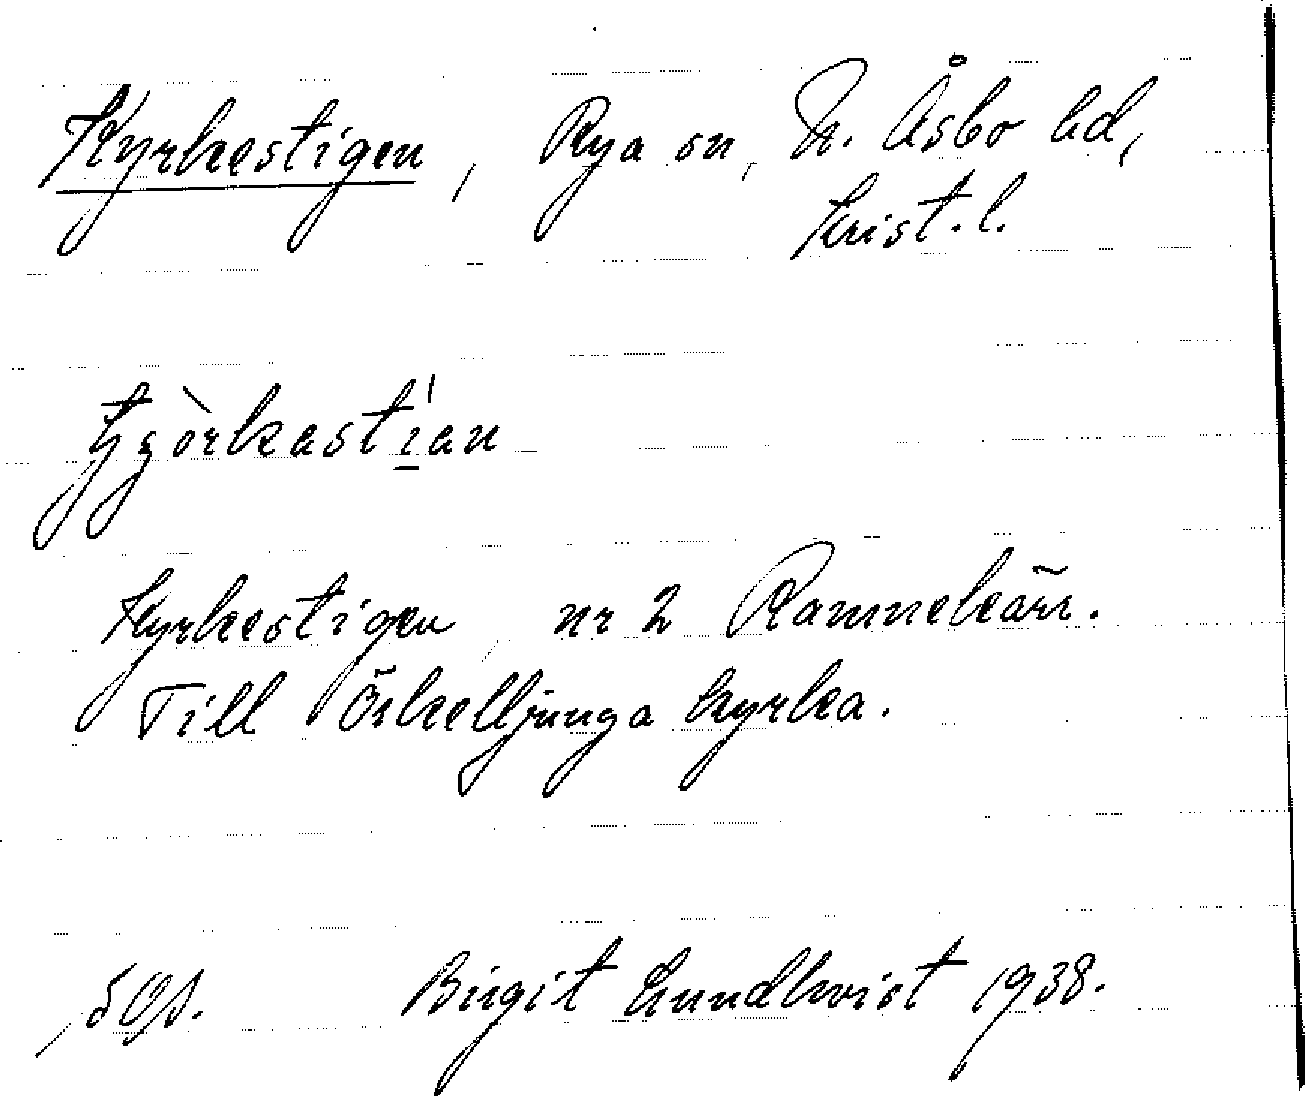 Kyrkestigen, Rya sn, N. Åsbo hd,
Krist. l.
Kyrkestigen, nr 2 Ramnekärr.
Till Örkelljunga kyrka.
Birgit Lundkvist 1938.